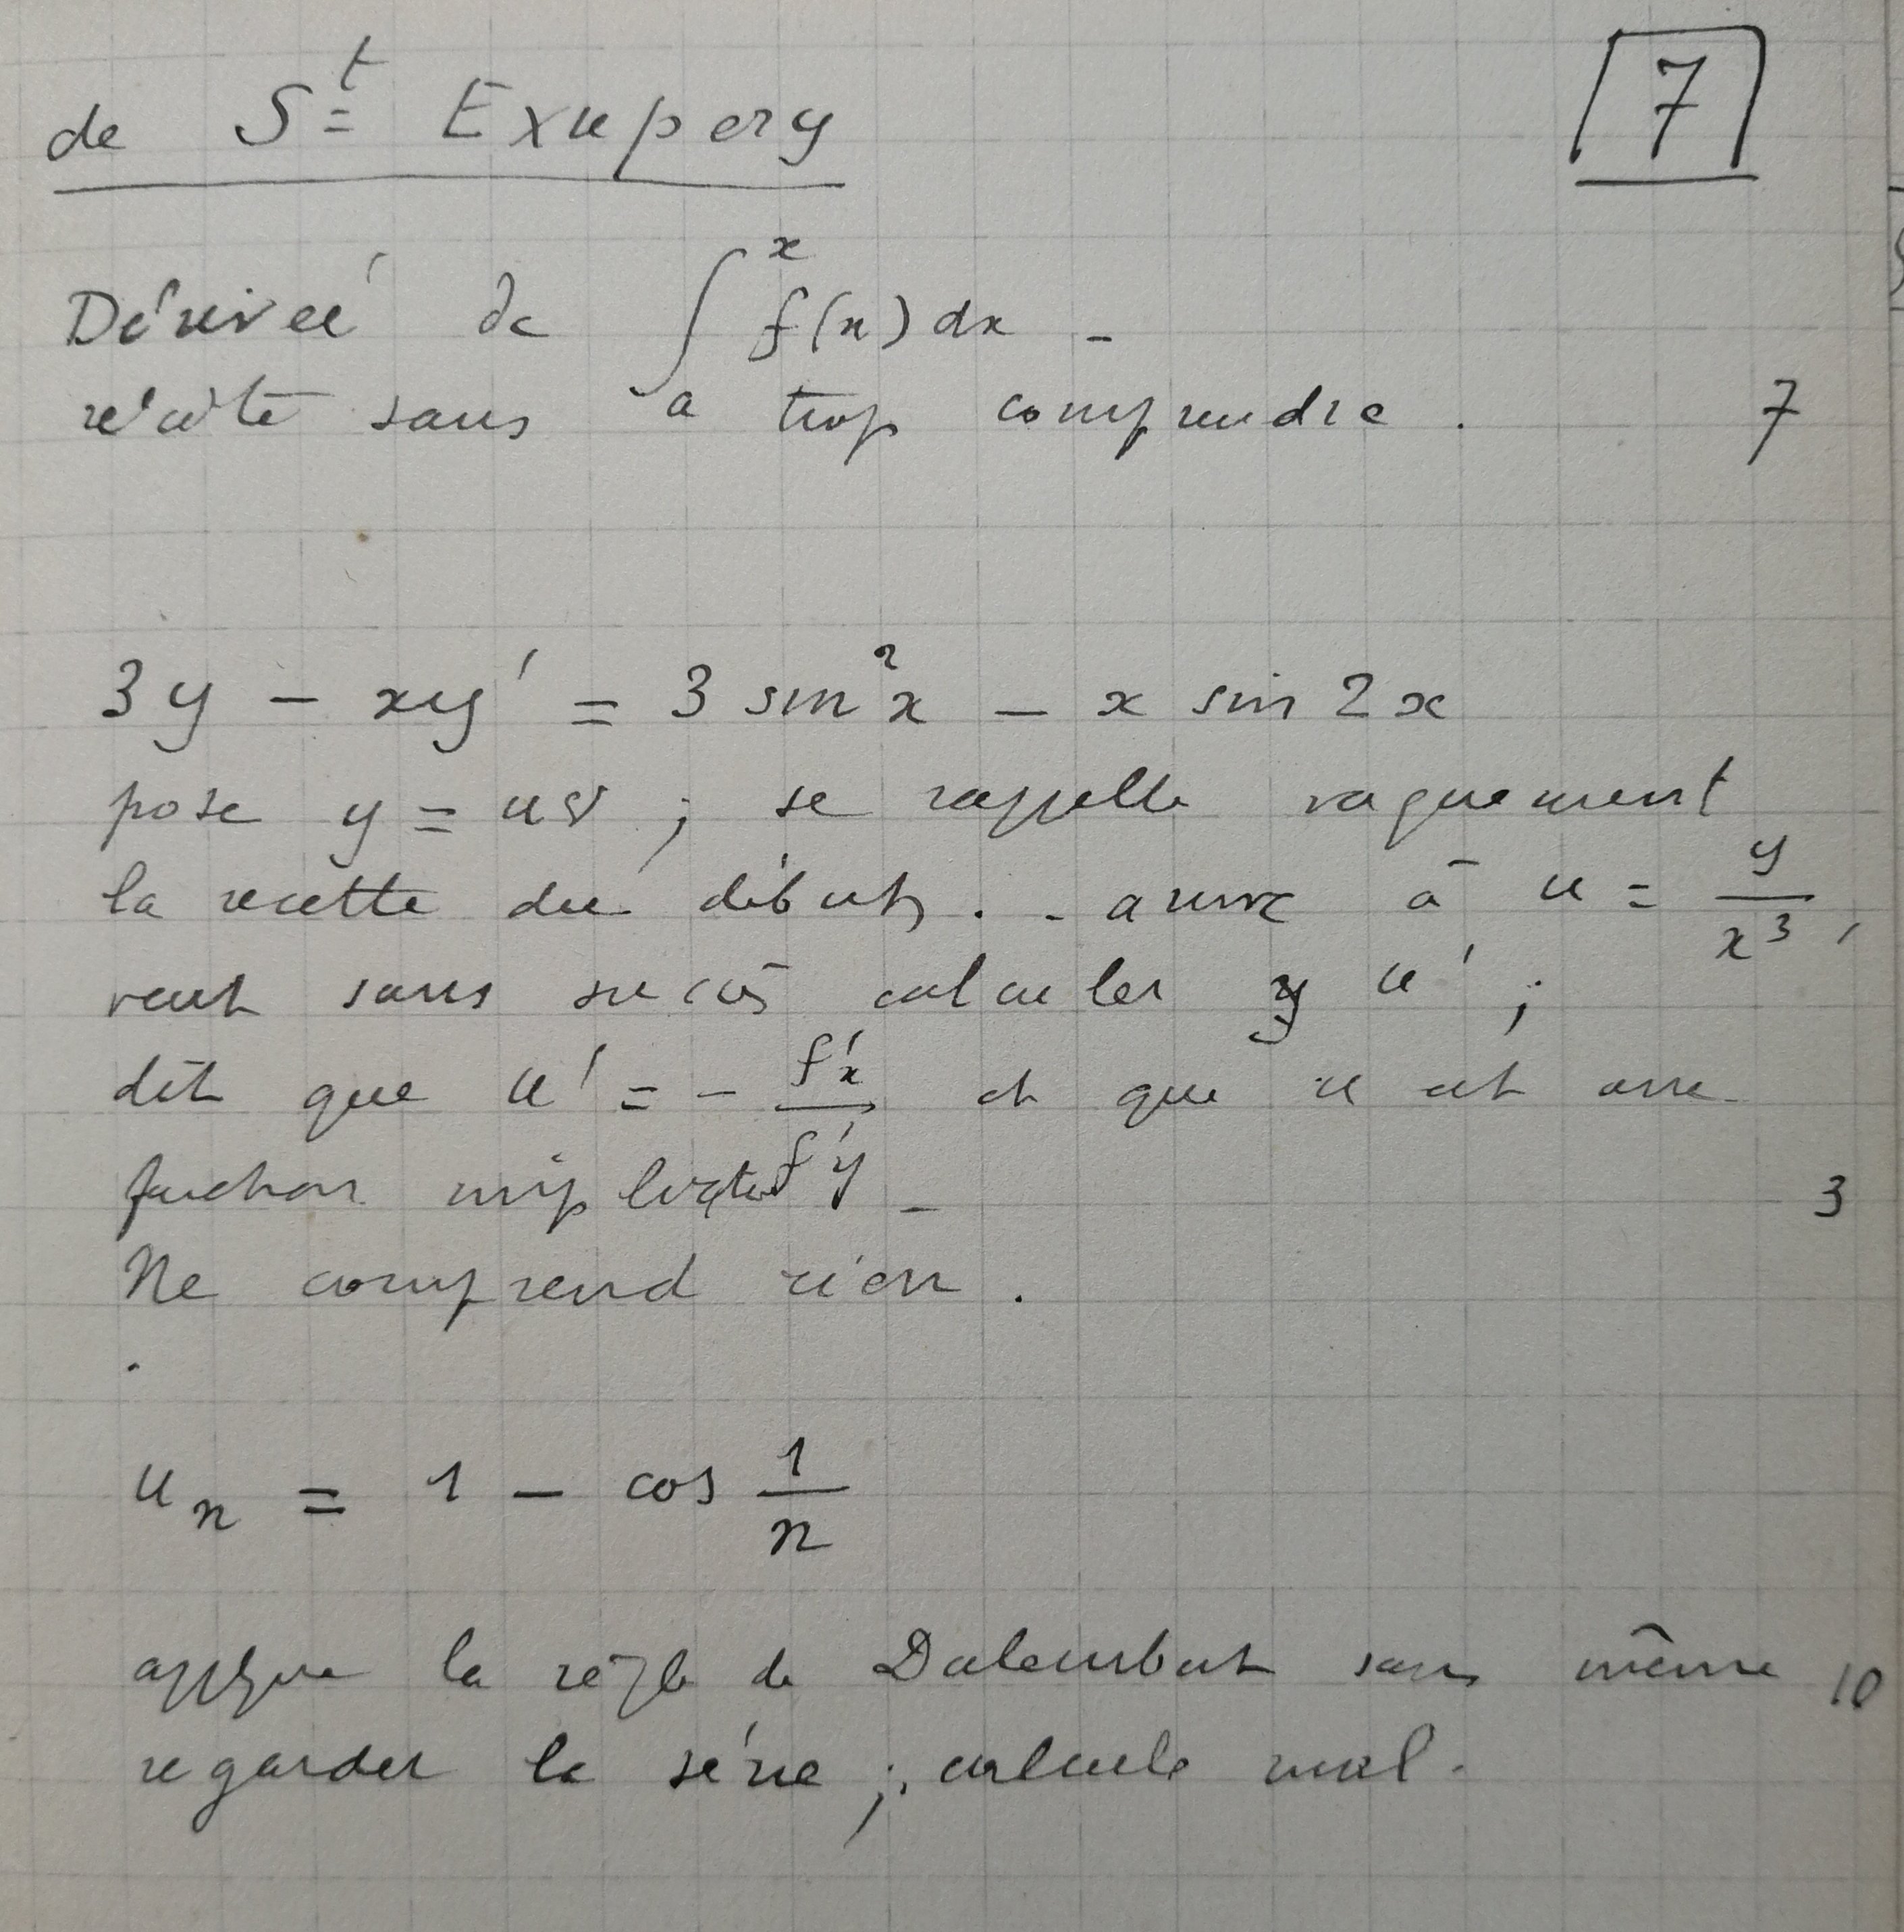 de S<sup>t</sup> Exupery 7
Dérivée de ∫ₐˣ f(x) dx -
récite sans trop comprendre . 7
3y - xy' = 3 sin²x - x sin 2x
pose y = uv ; se rappelle vaguement
la recette du début . - arrive à u = y/x³ ,
veut sans succès calculer u' ;
dit que u' = - f'x/f'y et que u est une
fonction implicite - 3
Ne comprend rien .
uₙ = 1 - cos 1/n
applique la règle de Dalembert sans même 10
regarder la série ; calcule mal .